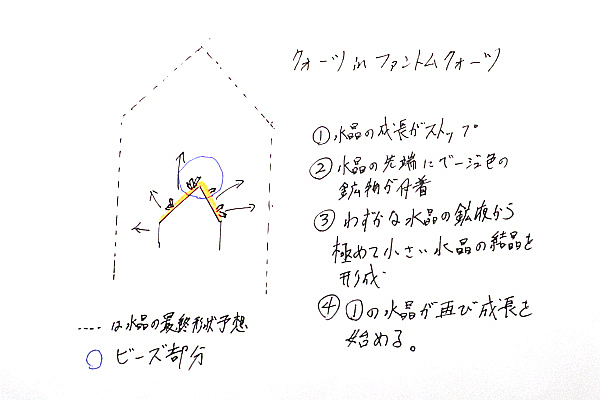 クォーツ in ファントムクォーツ
①水晶の成長がストップ
②水晶の先端にベージュ色の
鉱物が付着
③わずかな水晶の鉱液から
極めて小さい水晶の結晶を
形成
④①の水晶が再び成長を
始める。
---- は水晶の最終形状予想
○ ビーズ部分